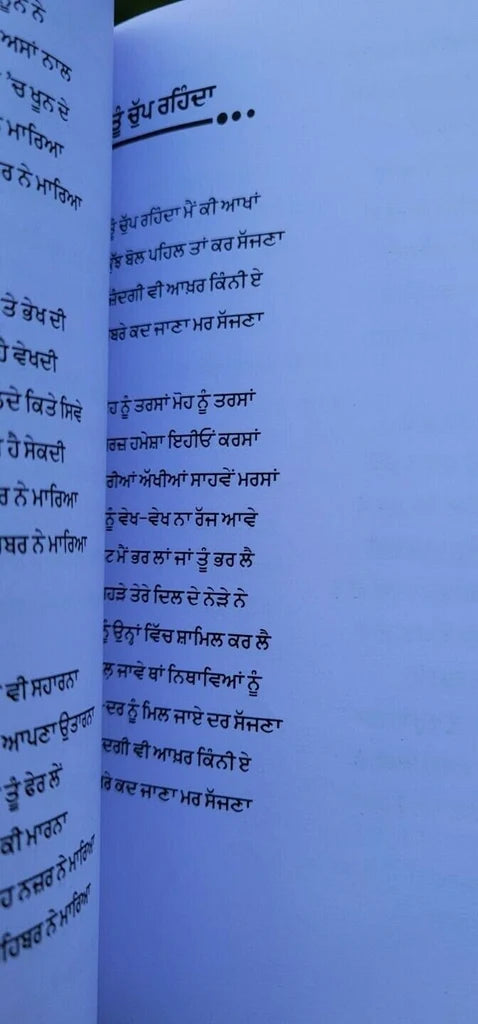 ਅਸਾਂ ਨਾਲ
'ਚ ਖੂਨ ਦੇ
ਮਾਰਿਆ
ਰ ਨੇ ਮਾਰਿਆ
ਤੇ ਭੇਖ ਦੀ
ਹੈ ਵੇਖਦੀ
ਦੇ ਕਿਤੇ ਸਿਵੇ
ਹੈ ਸੇਕਦੀ
ਰ ਨੇ ਮਾਰਿਆ
ਬਰ ਨੇ ਮਾਰਿਆ
ਵੀ ਸਹਾਰਨਾ
ਆਪਣਾ ਉਤਾਰਨਾ
ਤੂੰ ਫੇਰ ਲੇਂ
ਕੀ ਮਾਰਨਾ
ਹ ਨਜ਼ਰ ਨੇ ਮਾਰਿਆ
ਹਿਬਰ ਨੇ ਮਾਰਿਆ
ਤੂੰ ਚੁੱਪ ਰਹਿੰਦਾ...
ਤੂੰ ਚੁੱਪ ਰਹਿੰਦਾ ਮੈਂ ਕੀ ਆਖਾਂ
ਬੋਲ ਪਹਿਲ ਤਾਂ ਕਰ ਸੱਜਣਾ
ਜ਼ਿੰਦਗੀ ਵੀ ਆਖ਼ਰ ਕਿੰਨੀ ਏ
ਬਰੇ ਕਦ ਜਾਣਾ ਮਰ ਸੱਜਣਾ
ਹ ਨੂੰ ਤਰਸਾਂ ਮੋਹ ਨੂੰ ਤਰਸਾਂ
ਰਜ਼ ਹਮੇਸ਼ਾ ਇਹੀਓਂ ਕਰਸਾਂ
ਰੀਆਂ ਅੱਖੀਆਂ ਸਾਹਵੇਂ ਮਰਸਾਂ
ਨੂੰ ਵੇਖ-ਵੇਖ ਨਾ ਰੱਜ ਆਵੇ
ਟ ਮੈਂ ਭਰ ਲਾਂ ਜਾਂ ਤੂੰ ਭਰ ਲੈ
ਹੜੇ ਤੇਰੇ ਦਿਲ ਦੇ ਨੇੜੇ ਨੇ
ਨੂੰ ਉਨ੍ਹਾਂ ਵਿੱਚ ਸ਼ਾਮਿਲ ਕਰ ਲੈ
ਲ ਜਾਵੇ ਥਾਂ ਨਿਥਾਵਿਆਂ ਨੂੰ
ਦਰ ਨੂੰ ਮਿਲ ਜਾਏ ਦਰ ਸੱਜਣਾ
ਦਗੀ ਵੀ ਆਖ਼ਰ ਕਿੰਨੀ ਏ
ਰੇ ਕਦ ਜਾਣਾ ਮਰ ਸੱਜਣਾ